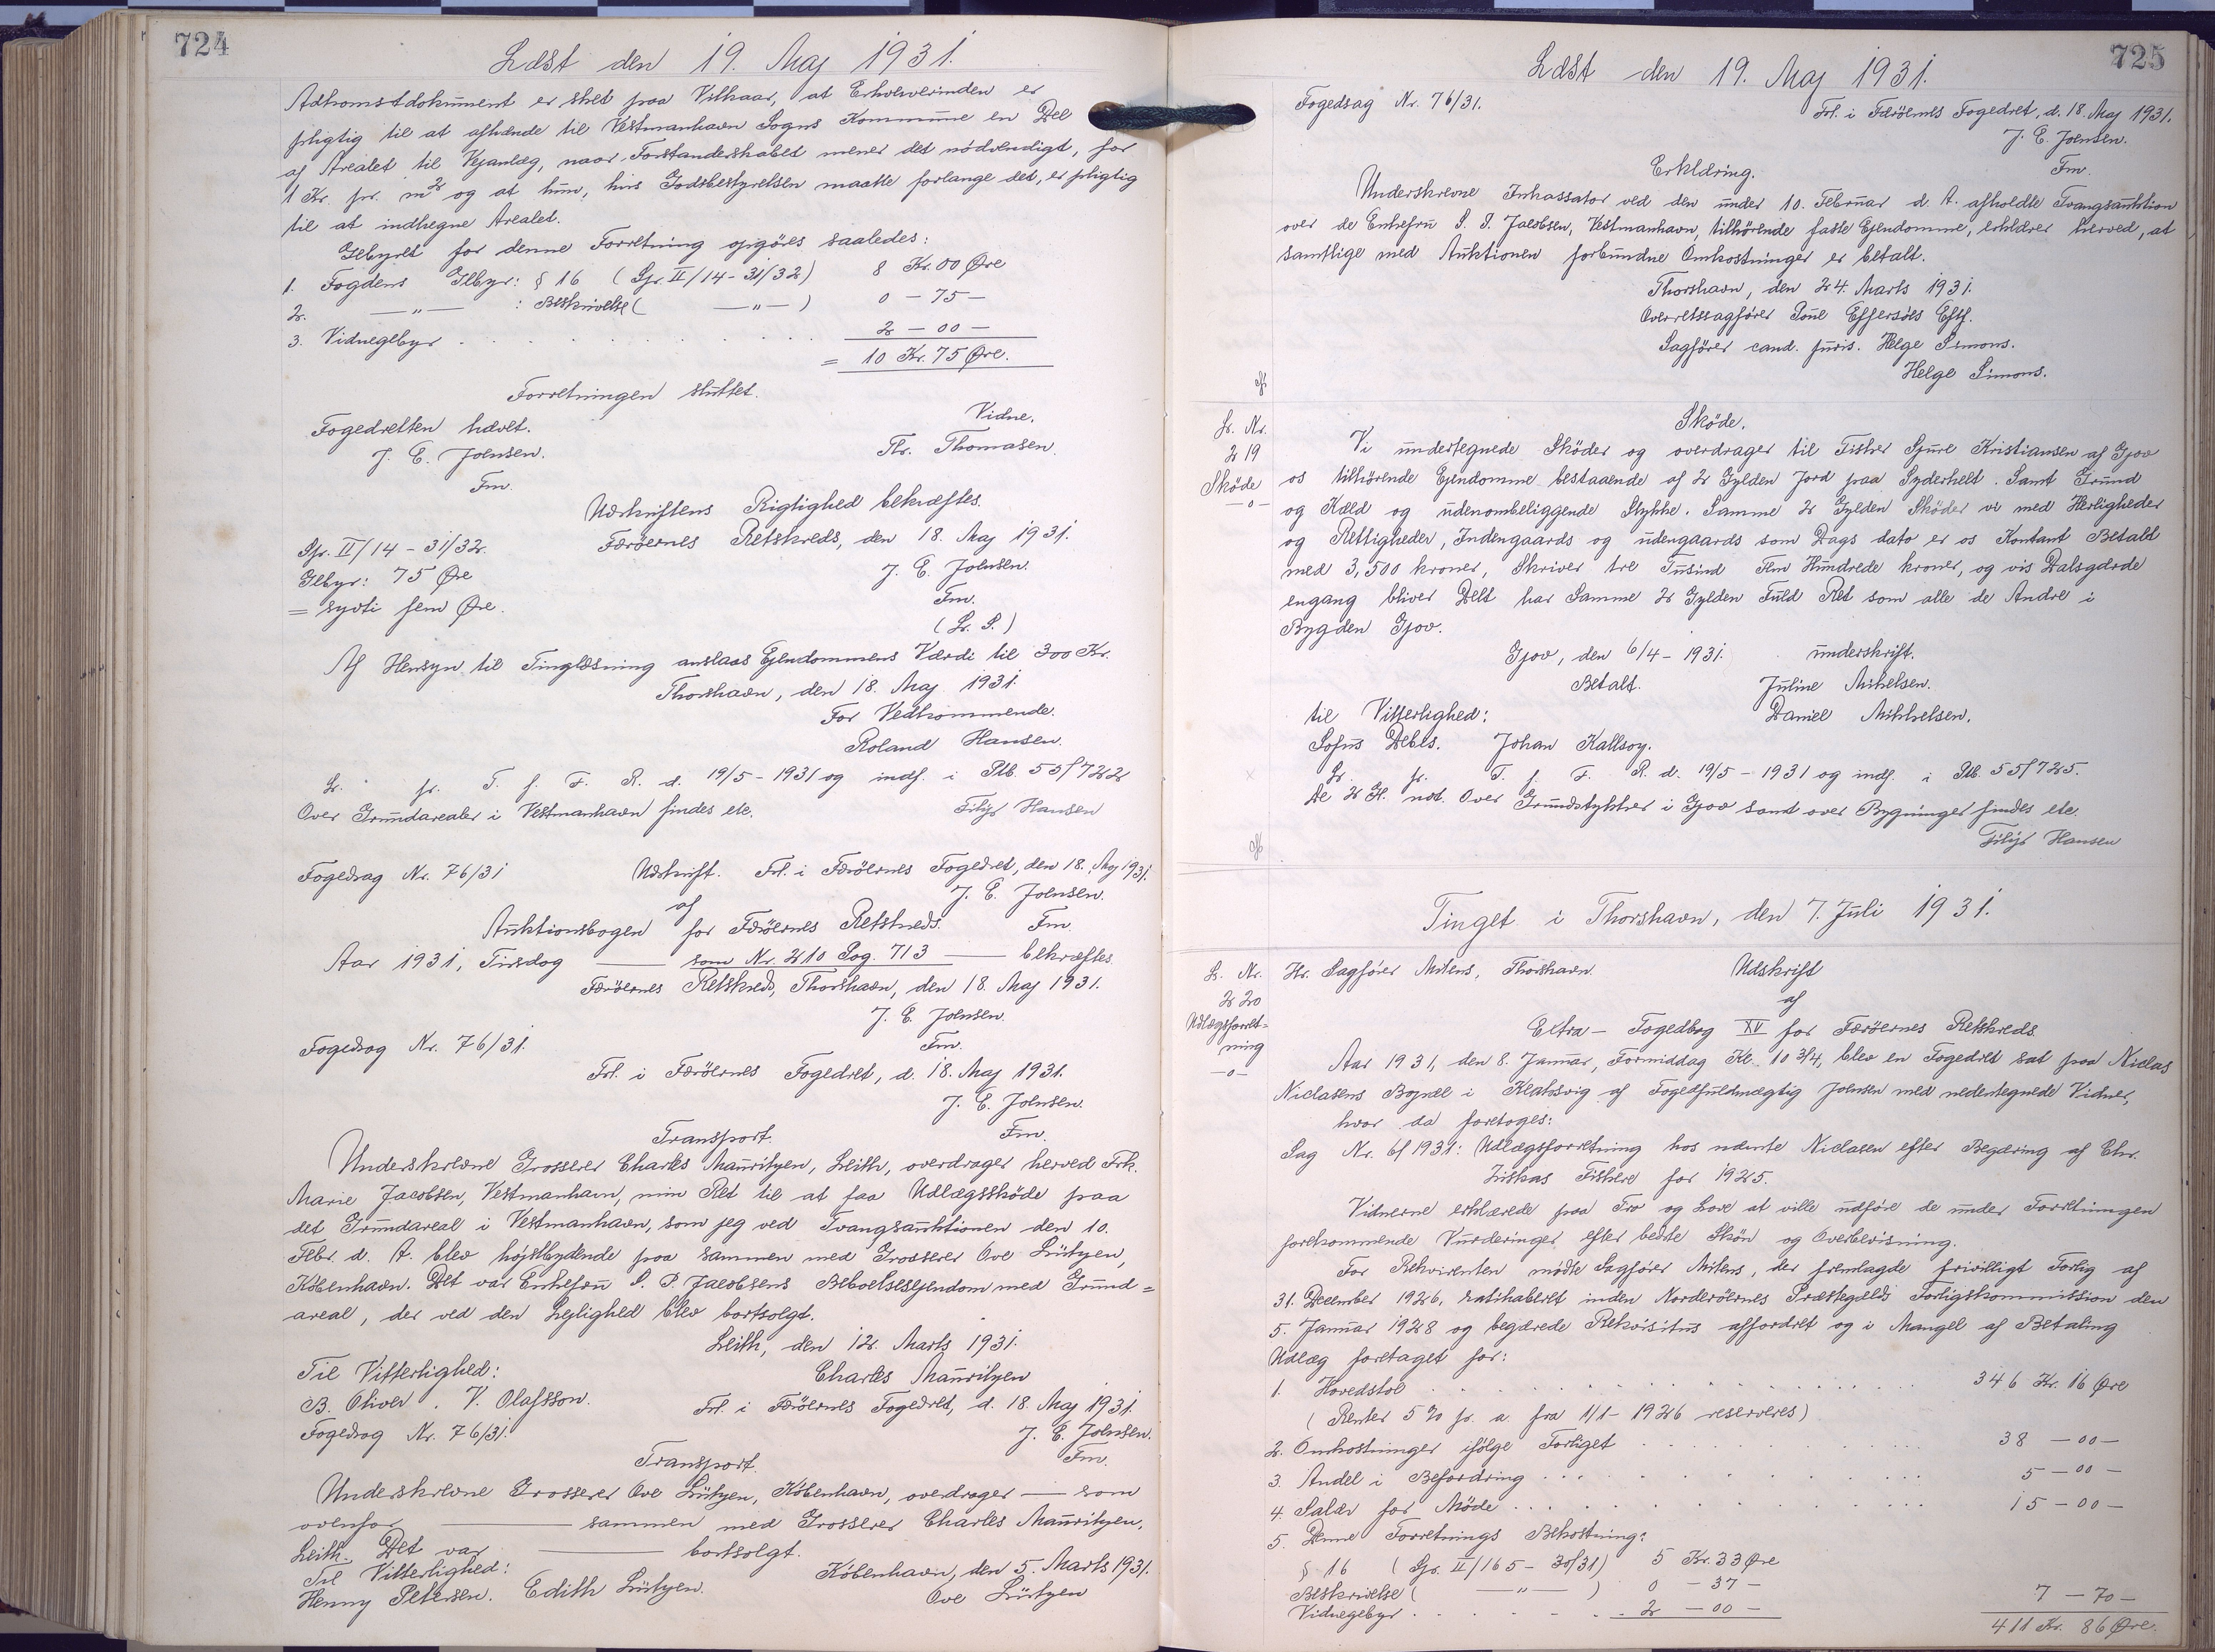 724
Læst den 19. Maj 1931.
Adkomstdokument er sket paa Vilkaar, at Erhververinden er
pligtig til at afhænde til Vestmanhavn Sogns Kommune en Del
af Arealet til Vejanlæg, naar Forstanderskabet mener det nödvendigt, for
1 Kr. pr. m² og at hun, hvis Jordsbestyrelsen maatte forlange det, er pligtig
til at indhegne Arealet.
Gebyret for denne Forretning opgöres saaledes:
1. Fogdens Gebyr: § 16 (Spr. II/14-31/32) 8 Kr. 00 Øre
2. —„— : Beskrivelse ( —„— ) 0 - 75 -
3. Vidnegebyr . . . . . . . . . 2 - 00 -
= 10 Kr. 75 Øre.
Forretningen sluttet.
Fogedretten hævet. Vidne.
J. E. Joensen. Thr. Thomasen.
Fm.
Udskriftens Rigtighed bekræftes.
Spr. II/14 - 31/32. Færöernes Retskreds, den 18. Maj 1931.
Gebyr: 75 Øre J. E. Joensen.
= syvti fem Øre. Fm.
(L. S.)
Af Hensyn til Tinglæsning anslaas Ejendommens Værdi til 300 Kr.
Thorshavn, den 18. Maj 1931.
For Vedkommende.
Roland Hansen.
L. pr. T. f. F. R. d. 19/5-1931 og indf. i Ptb. 55/722
Over Grundarealer i Vestmanhavn findes etc. Filip Hansen
Fogedsag Nr. 76/31 Udskrift. Frl. i Færöernes Fogedret, den 18. Maj 1931.
af J. E. Joensen.
Auktionsbogen for Færöernes Retskreds. Fm.
Aar 1931, Tirsdag —— som Nr. 210 Pag. 713 —— bekræftes
Færöernes Retskreds, Thorshavn, den 18. Maj 1931.
J. E. Joensen.
Fogedsag Nr. 76/31. Fm.
Frl. i Færöernes Fogedret, d. 18. Maj 1931.
J. E. Joensen.
Transport. Fm.
Underskrevne Grosserer Charles Mauritzen, Leith, overdrager herved Frk.
Marie Jacobsen, Vestmanhavn, min Ret til at faa Udlægsskøde paa
det Grundareal i Vestmanhavn, som jeg ved Tvangsauktionen den 10.
Febr. d. A. blev højstbydende paa sammen med Grosserer Ove Lützen,
København. Det var Enkefru S. P. Jacobsens Beboelsesejendom med Grund=
areal, der ved den Lejlighed blev bortsolgt.
Leith, den 12. Marts 1931.
Til Vitterlighed: Charles Mauritzen
B. Oliver. V. Olafsson. Frl. i Færöernes Fogedret, d. 18. Maj 1931.
Fogedsag Nr. 76/31. J. E. Joensen.
Transport. Fm.
Underskrevne Grosserer Ove Lützen, København, overdrager —— som
ovenfor —— sammen med Grosserer Charles Mauritzen,
Leith. Det var —— bortsolgt.
Til Vitterlighed: København, den 5. Marts 1931.
Henny Petersen. Edith Lützen. Ove Lützen
725
Læst den 19. Maj 1931.
Fogedsag Nr. 76/31. Frl. i Færöernes Fogedret, d. 18. Maj 1931.
J. E. Joensen.
Erklæring. Fm.
Underskrevne Inkassator ved den under 10. Februar d. A. afholdte Tvangsauktion
over de Enkefru S. P. Jacobsen, Vestmanhavn, tilhörende faste Ejendomme, erklærer herved, at
samtlige med Auktionen forbundne Omkostninger er betalt.
Thorshavn, den 24. Marts 1931.
Overretssagförer Poul Effersöes Eftf.
Sagförer cand. juris. Helge Simons.
Helge Simons.
L. Nr.
219
Sköde
-o-
Sköde.
Vi undertegnede Sköder og overdrager til Fisker Sjure Kristiansen af Gjov
os tilhörende Ejendomme bestaaende af 2 Gylden Jord paa Syderhelt. Samt Grund
og Kæld og udenombeliggende Stykke. Samme 2 Gylden Sköder vi med Herligheder
og Rettigheder, Indengaards og udengaards som Dags dato er os Kontant Betalt
med 3,500 kroner, Skriver tre Tusind Fem Hundrede kroner, og vis Dalsgærde
engang bliver Delt har Samme 2 Gylden Fuld Ret som alle de Andre i
Bygden Gjov.
Gjov, den 6/4-1931. underskrift.
Betalt. Juline Mikelsen.
til Vitterlighed: Daniel Mikkelsen.
Sofus Debes. Johan Kallsoy.
L. pr. T. f. F. R. d. 19/5-1931 og indf. i Ptb. 55/725.
De 2 Gl. not. Over Grundstykker i Gjov samt over Bygninger findes etc.
Filip Hansen
Tinget i Thorshavn, den 7. Juli 1931.
L. Nr.
220
Udlægsforret=
ning
-o-
Hr. Sagförer Mitens, Thorshavn. Udskrift
af
Extra - Fogedbog XV for Færöernes Retskreds.
Aar 1931, den 8. Januar, Formiddag Kl. 10 3/4, blev en Fogedret sat paa Niclas
Niclasens Bopæl i Klaksvig af Fogedfuldmægtig Joensen med nedentegnede Vidner,
hvor da foretoges:
Sag Nr. 6/1931: Udlægsforretning hos nævnte Niclasen efter Begæring af Chr.
Ziskas Fiskere for 1925.
Vidnerne erklærede paa Tro og Love at ville udföre de under Forretningen
forekommende Vurderinger efter bedste Skön og Overbevisning.
For Rekvirenten mödte Sagförer Mitens, der fremlagde frivilligt Forlig af
31. December 1926, ratihaberet inden Norderöernes Præstegælds Forligskommission den
5. Januar 1928 og begærede Rekvisitus affordret og i Mangel af Betaling
Udlæg foretaget for:
1. Hovedstol . . . . . . . . . 346 Kr. 16 Øre
(Renter 5 % p. a. fra 1/1-1926 reserveres)
2. Omkostninger ifölge Forliget . . . . . . 38 - 00 -
3. Andel i Befordring . . . . . . . . 5 - 00 -
4. Salær for Møde . . . . . . . . . 15 - 00 -
5. Denne Forretnings Bekostning:
§ 16 (Spr. II/165-30/31) 5 Kr. 33 Øre
Beskrivelse ( —„— ) 0 - 37 -
Vidnegebyr . . . . . . 2 - 00 - 7 - 70 -
411 Kr. 86 Øre.